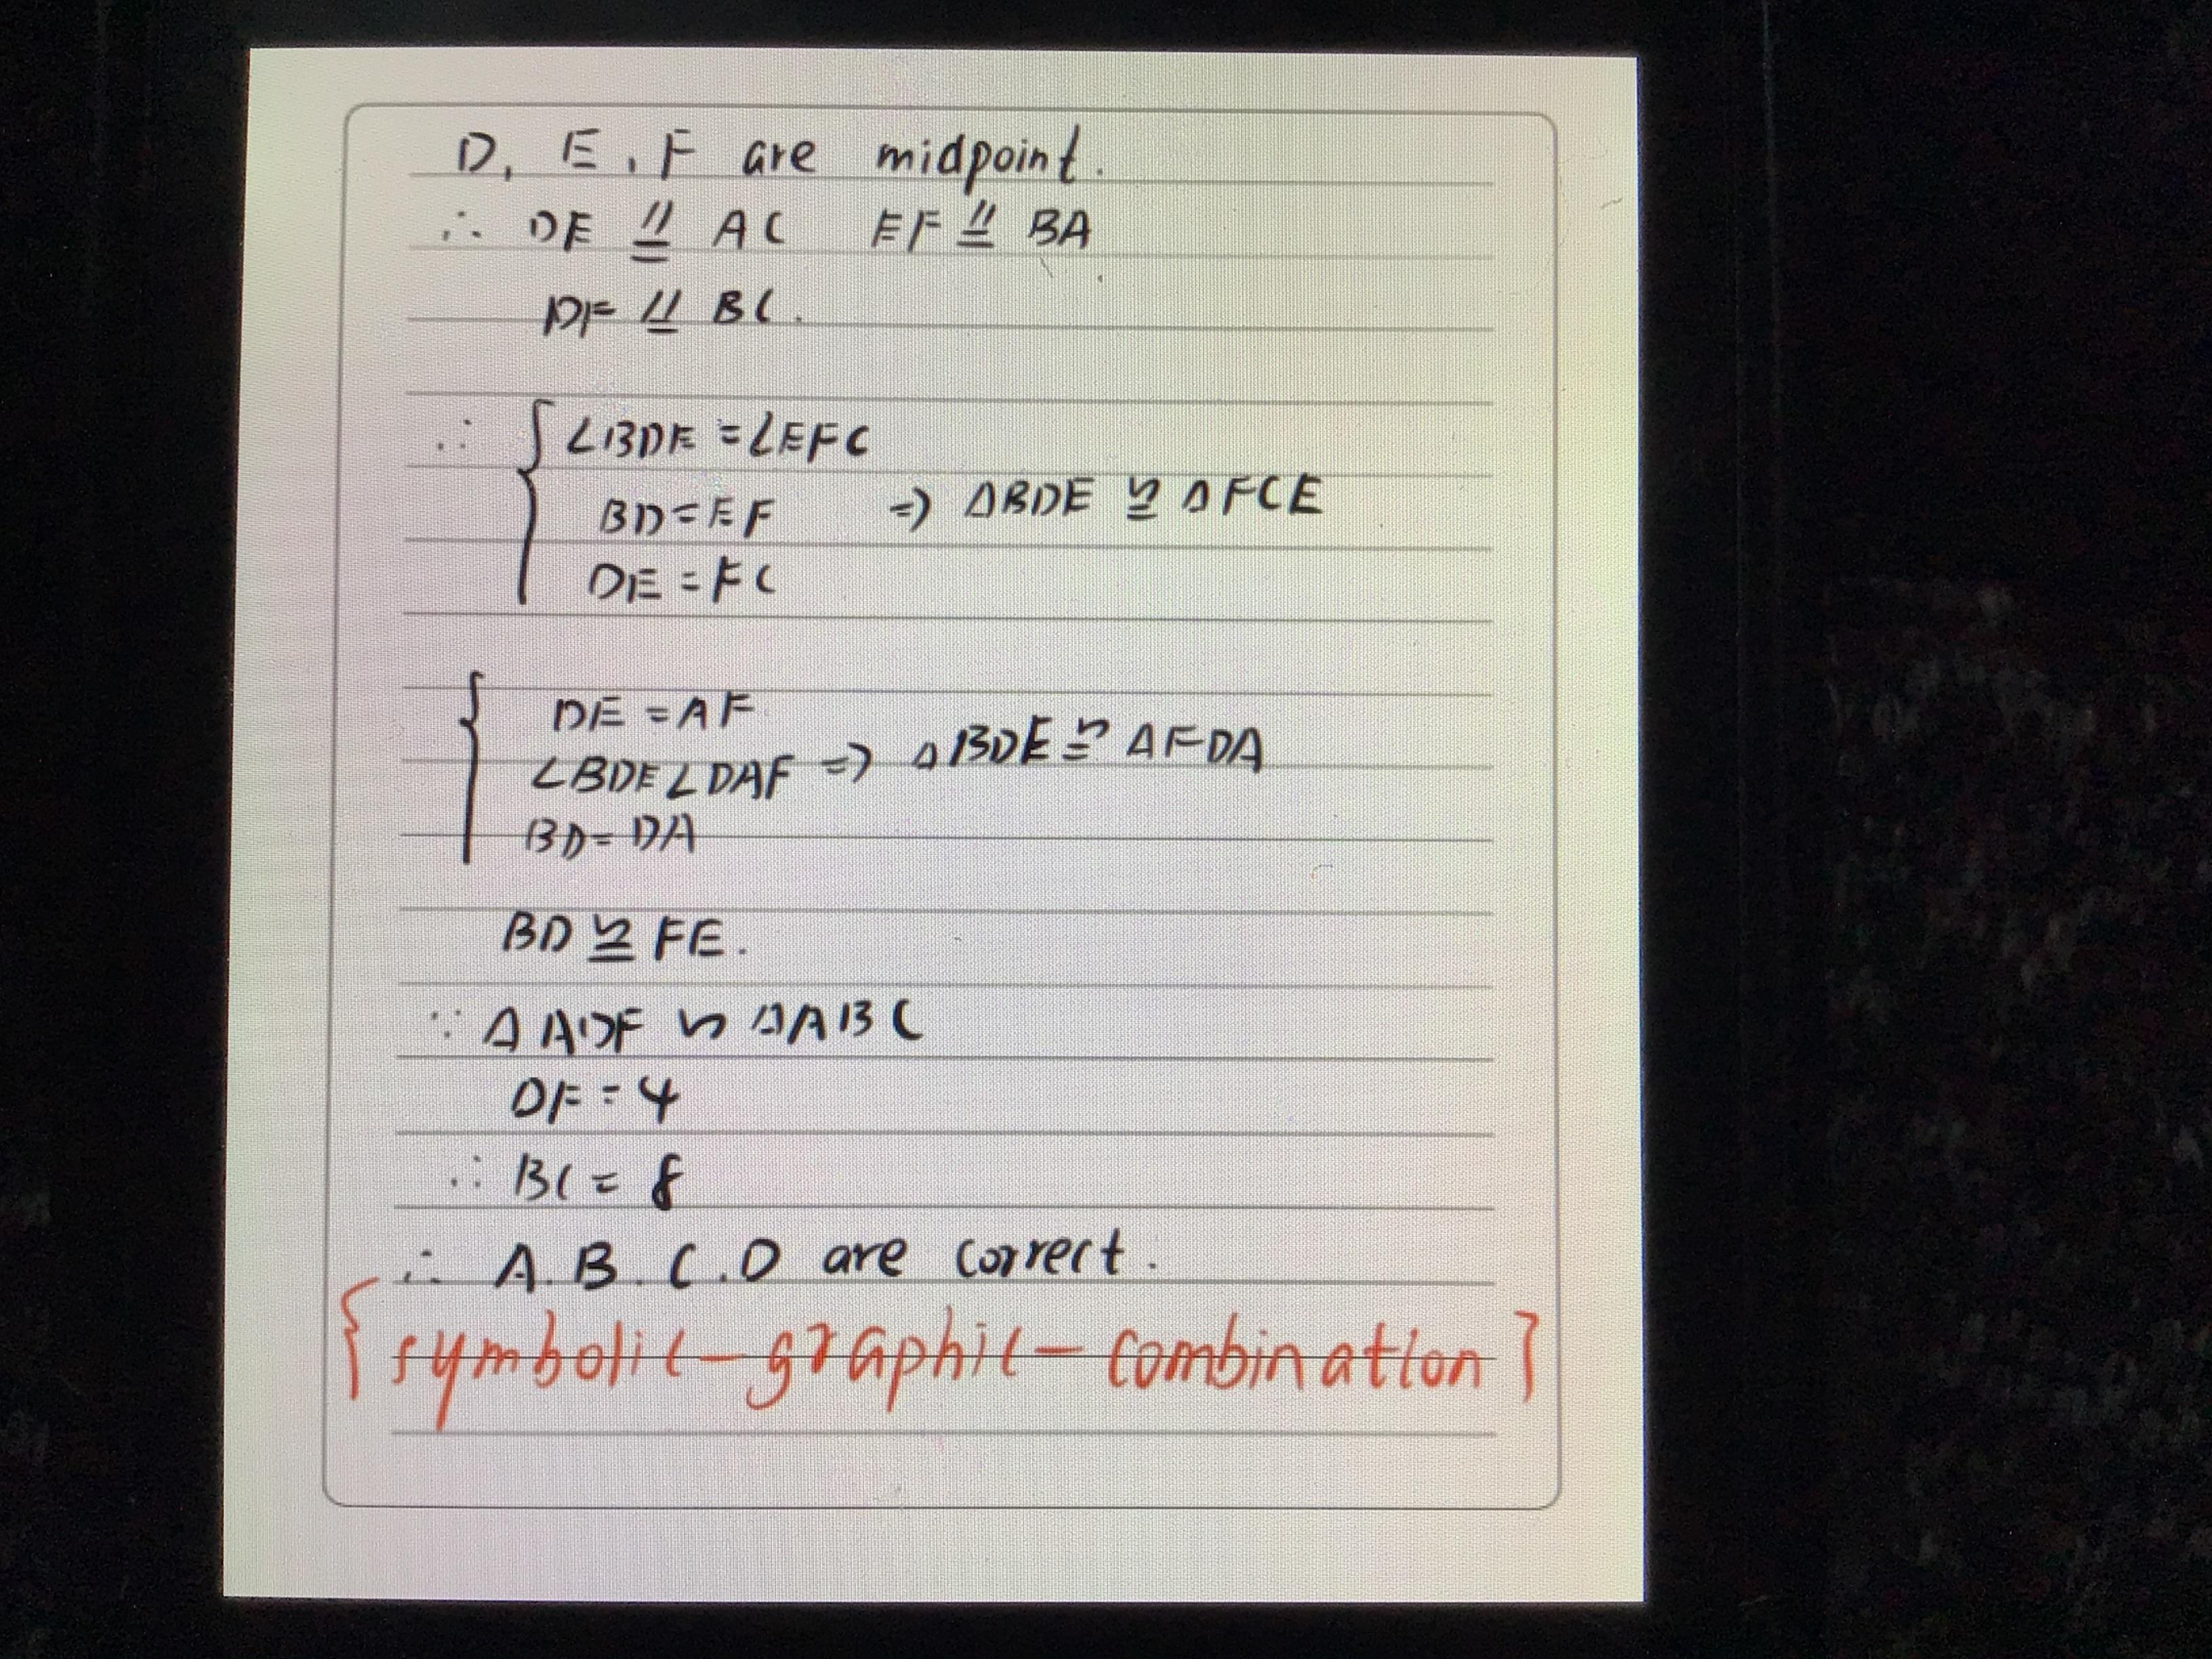 D, E, F are midpoint.
∴ DE ⫽= AC EF ⫽= BA
DF ⫽= BC.
∴ { ∠BDE = ∠EFC
BD = EF ⇒ △BDE ≌ △FCE
DE = FC
{ DE = AF
∠BDE ∠DAF ⇒ △BDE ≌ △FDA
BD = DA
BD ≌ FE.
∵ △ADF ∽ △ABC
DF = 4
∴ BC = 8
∴ A. B. C. D are correct.
{symbolic-graphic-combination}